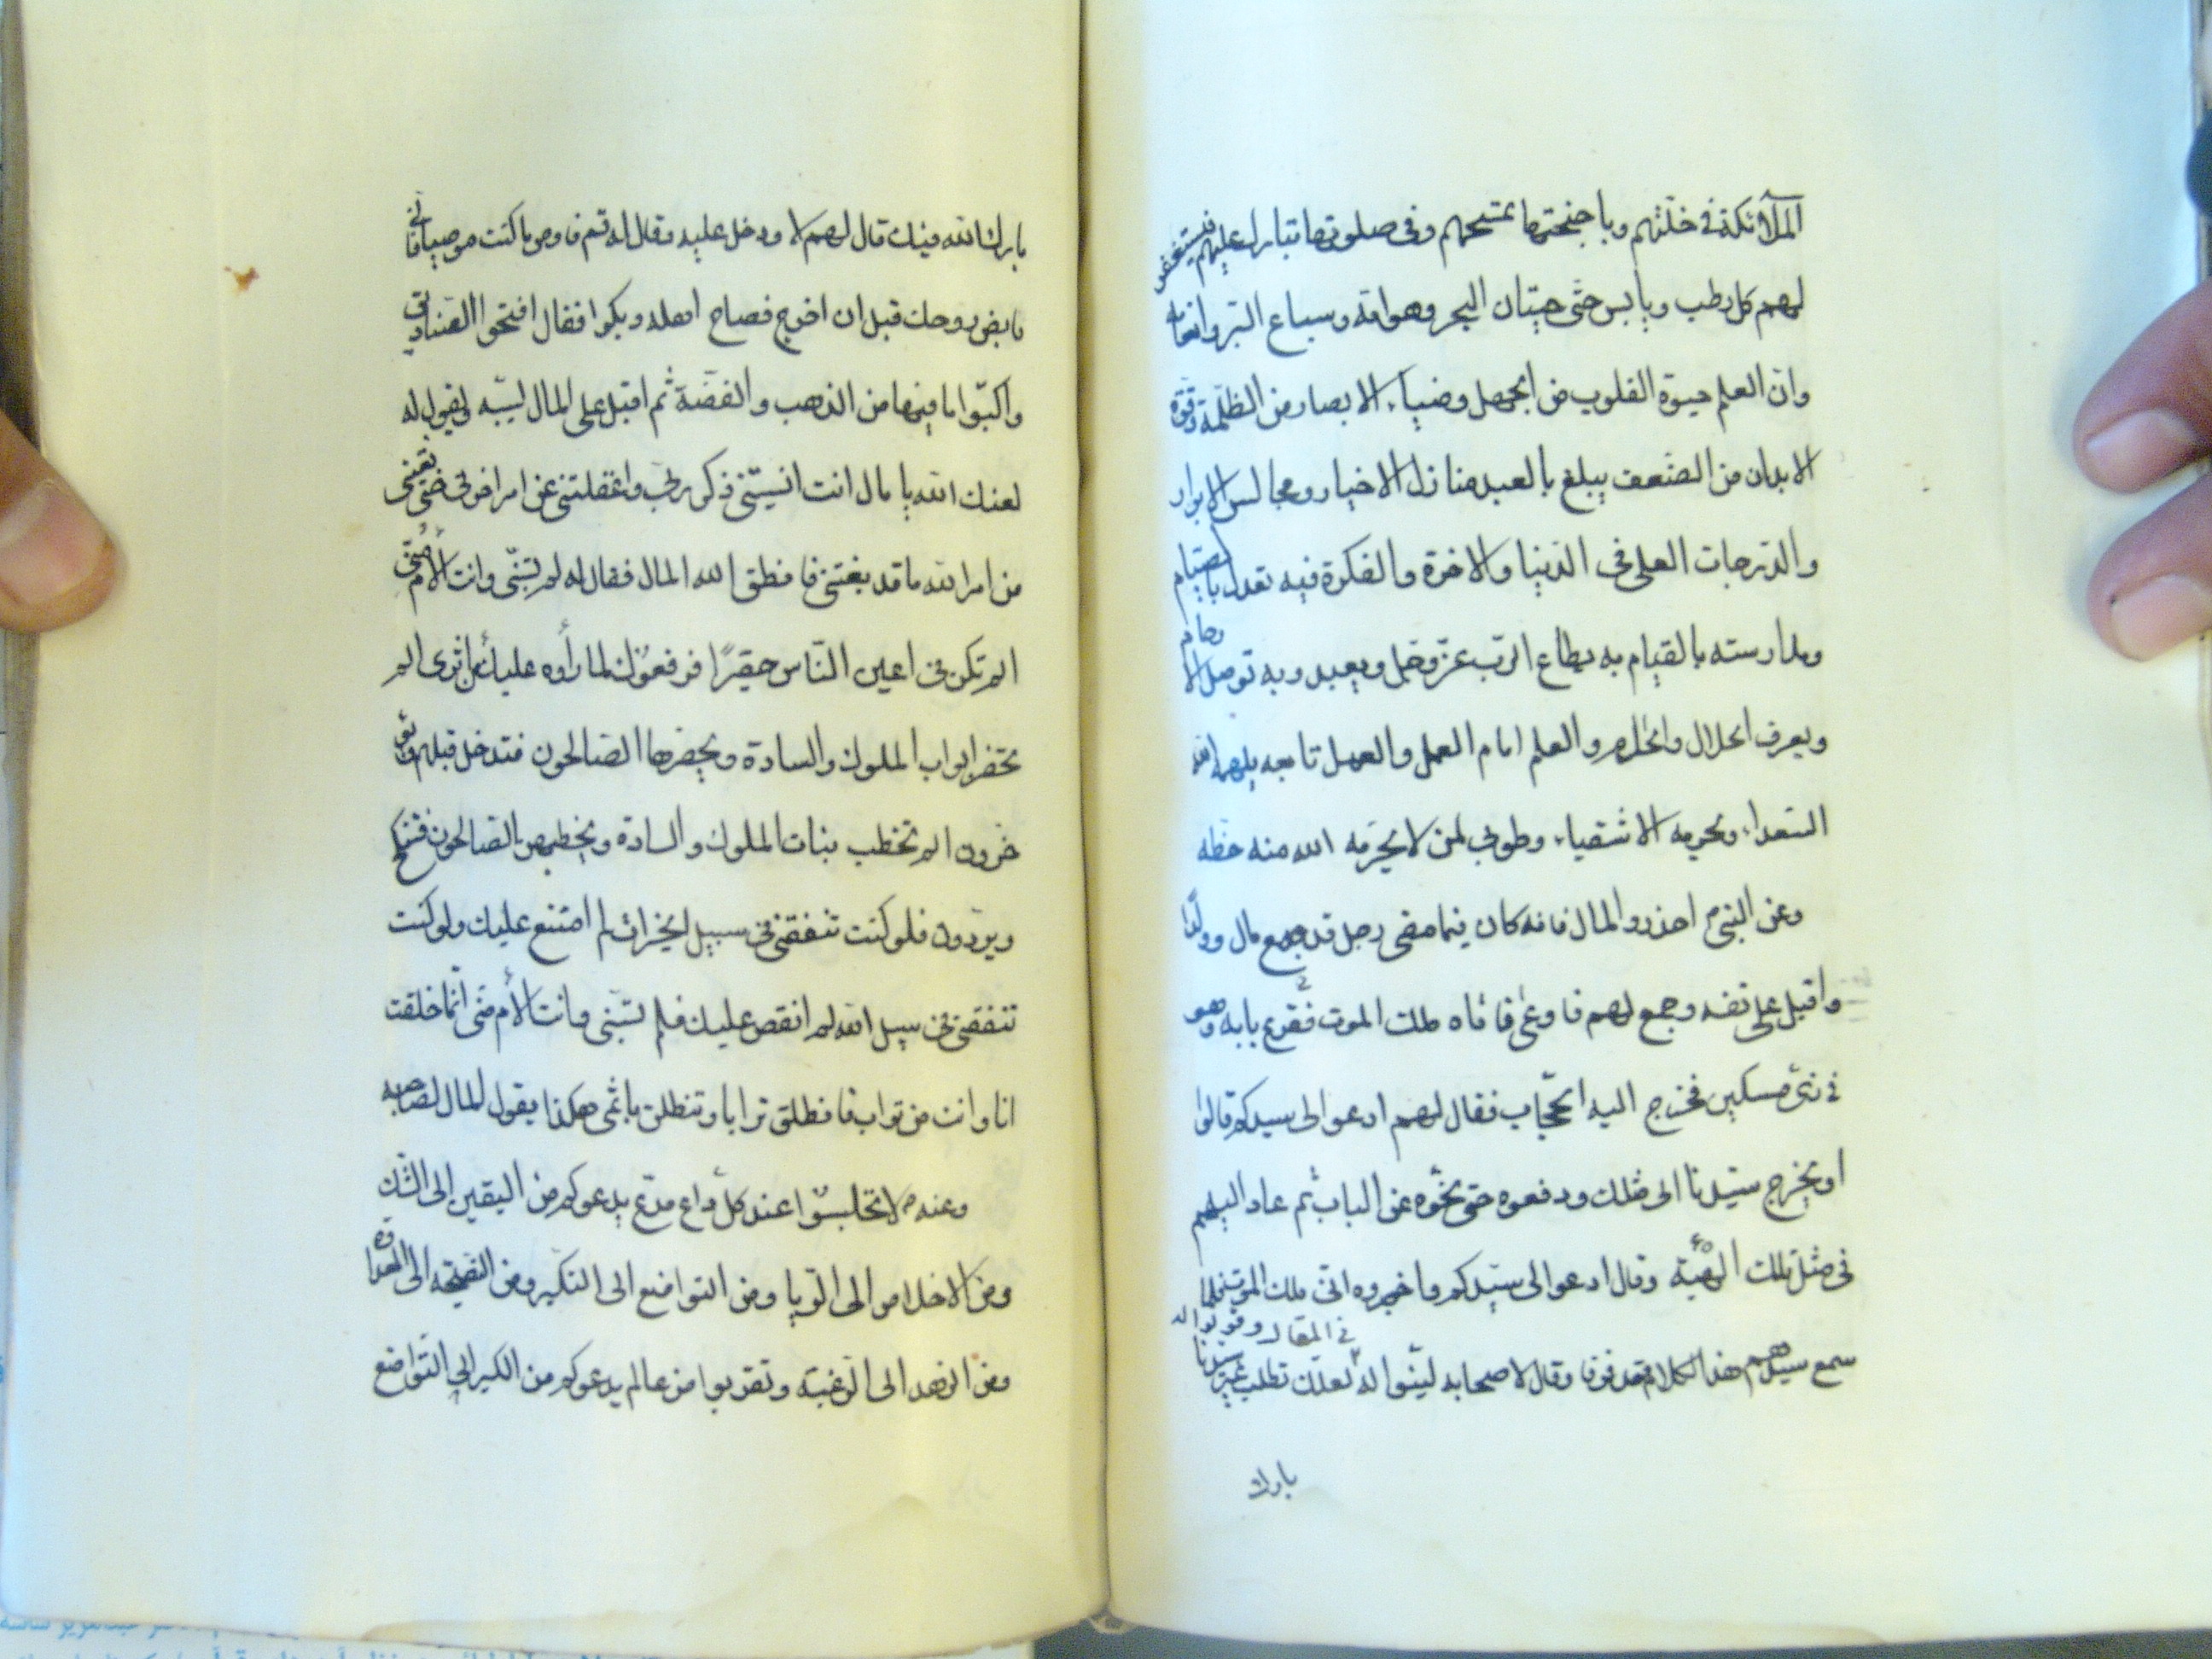 الملائكة في خلّتهم وباجنحتها تمسحهم وفي صلوتها تبارك عليهم فيستغفر
لهم كل رطب ويابس حتّى حيتان البحر وهوامه وسباع البرّ وانعامه
وانّ العلم حيوة القلوب من الجهل وضياء الابصار من الظلمة وقوّة
الابدان من الضعف يبلغ بالعبد منازل الاخيار ومجالس الابرار
والدرجات العلى في الدنيا والاخرة والفكرة فيه تعدل بالصيام
ومدارسته بالقيام به يطاع الربّ عزّ وجل ويعبد وبه توصل الارحام
ويعرف الحلال والحرام والعلم امام العمل والعمل تابعه يلهمه الله
السعداء ويحرمه الاشقياء وطوبى لمن لا يحرمه الله منه حظه
وعن النبيّ احذروا المال فانه كان فيما مضى رجل قد جمع مال وولدا
واقبل على نفسه وجمع لهم فاوعى فاتاه ملك الموت فقرع بابه وهو
في زيّ مسكين فخرج اليه الحجّاب فقال لهم ادعوا لى سيدكم قالوا
او يخرج سيّدنا الى مثلك ودفعوه حتى نحّوه عن الباب ثم عاد اليهم
في مثل تلك الهيئة وقال ادعوا لى سيّدكم واخبروه انّى ملك الموت فلما
سمع سيدهم هذا الكلام قعد فرقا وقال لاصحابه ليّنوا له في المقال وقولوا له لعلّك تطلب غير سيدنا
بارك
بارك الله فيك قال لهم لا ودخل عليه وقال له قم فاوص ما كنت موصيا فانّى
قابض روحك قبل ان اخرج فصاح اهله وبكوا فقال افتحوا الصناديق
واكبّوا ما فيها من الذهب والفضّة ثم اقبل على المال يسبّه ويقول له
لعنك الله يا مال انت انسيتني ذكر ربّى واغفلتنى عن امر اخرتى حتى بغتنى
من امر الله ما قد بغتنى فانطق الله المال فقال له لم تسبّنى وانت الأم منّى
الم تكن في اعين النّاس حقيرًا فرفعوك لما رأوه عليك من اثرى الم
تحضر ابواب الملوك والسادة ويحضرها الصالحون فتدخل قبلهم ويؤ
خرون الم تخطب بنات الملوك والسادة ويخطبهن الصالحون فتنكح
ويردّون فلو كنت تنفقنى في سبيل الخيرات لم امتنع عليك ولو كنت
تنفقنى في سبيل الله لم انقص عليك فلم تسبّنى وانت الأم منّى انّما خلقت
انا وانت من تراب فانطلق ترابا وتنطلق باثمى هكذا يقول المال لصاحبه
وعنه لا تجلسوا عند كلّ داع مدّع يدعوكم من اليقين الى الشّك
ومن الاخلاص الى الرّيا ومن التواضع الى التكبّر ومن النصيحة الى العداوة
ومن الزهد الى الرّغبة وتقربوا من عالم يدعوكم من الكبر الى التواضع